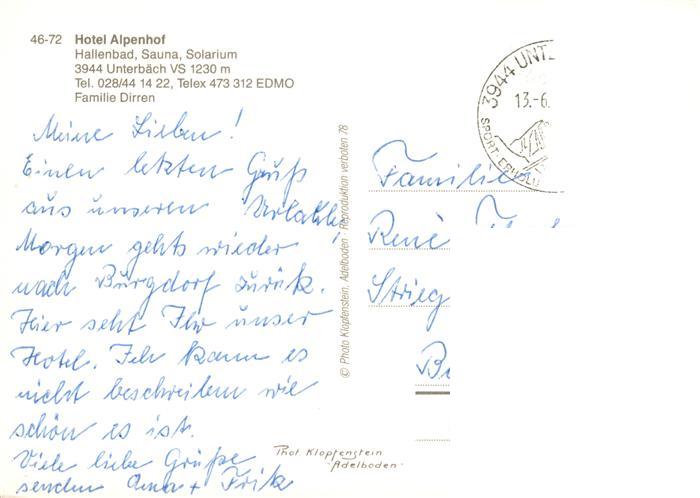 46-72 Hotel Alpenhof
Hallenbad, Sauna, Solarium
3944 Unterbäch VS 1230 m
Tel. 028/44 14 22, Telex 473 312 EDMO
Familie Dirren
3944 UNT
13.-6.
SPORT ERHOLU
Meine Lieben!
Einen letzten Gruß
aus unseren
Morgen gehts wieder
nach Burgdorf zurük.
Hier seht Ihr unser
Hotel. Ich kann es
nicht beschreiben wie
schön es ist.
Viele liebe Grüße
senden + Fritz
© Photo Klopfenstein, Adelboden · Reproduktion verboten 78
Familie
René
Strieg
Bu
Phot. Klopfenstein
· Adelboden ·